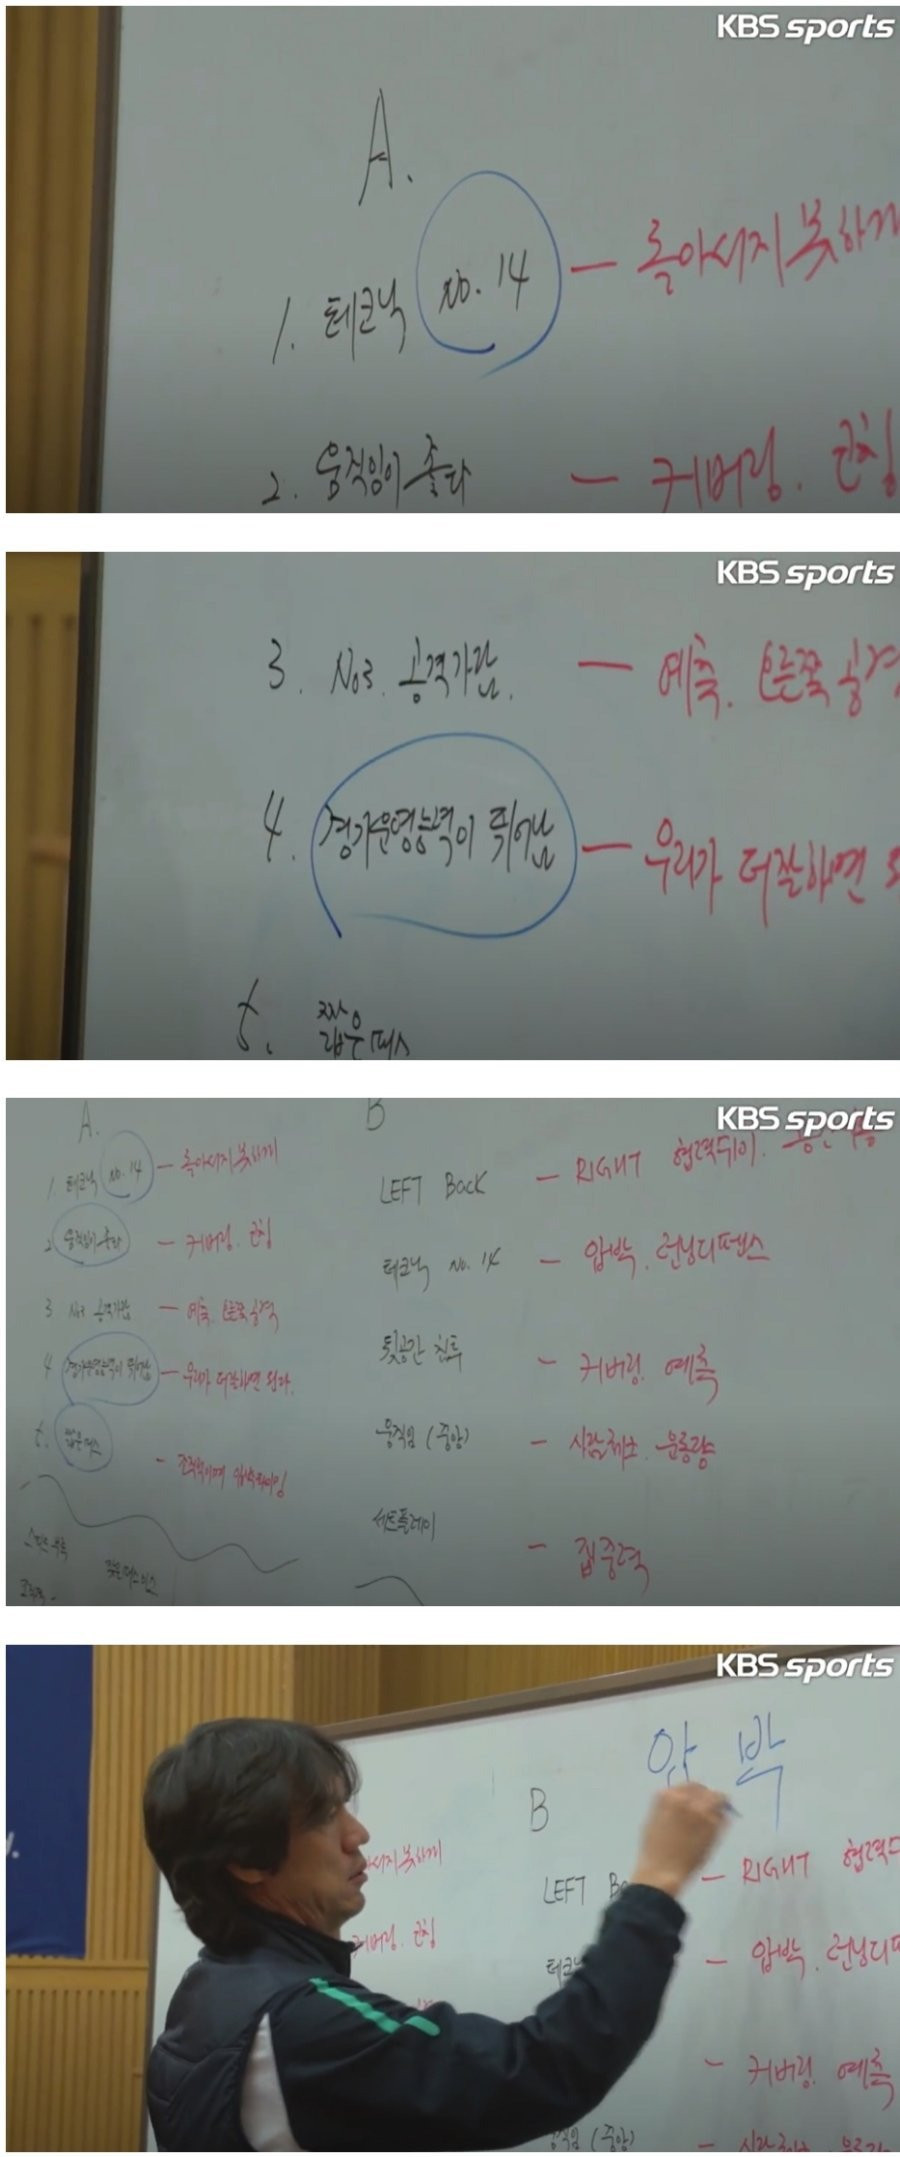 KBS sports
A.
1. 테크닉 no. 14 — 돌아서지 못하게
2. 움직임이 좋다 — 커버링. 근칭
KBS sports
3. No3. 공격가담. — 예측. 오른쪽 공격
4. 경기운영능력이 뛰어남 — 우리가 더 잘하면 되
5. 짧은패스
KBS sports
A.
1. 테크닉 no. 14 — 돌아서지 못하게
2. 움직임이 좋다 — 커버링. 근칭
3 No3 공격가담 — 예측. 오른쪽 공격
4 경기운영능력이 뛰어남 — 우리가 더 잘하면 된다.
5. 짧은패스 - 조직적이며 압박타이밍
B
LEFT Back — RIGHT 협력뛰이.
테크닉 no. 14 — 압박. 런닝디펜스
뒷공간 침투 — 커버링. 예측
움직임 (중앙) — 시간체크. 운동량
세트플레이 - 집중력
KBS sports
압박
B
서지 못하게
커버링. 근칭
LEFT Ba — RIGHT 협력
테크닉 — 압박. 런닝디펜
— 커버링. 예측
움직임 (중앙)